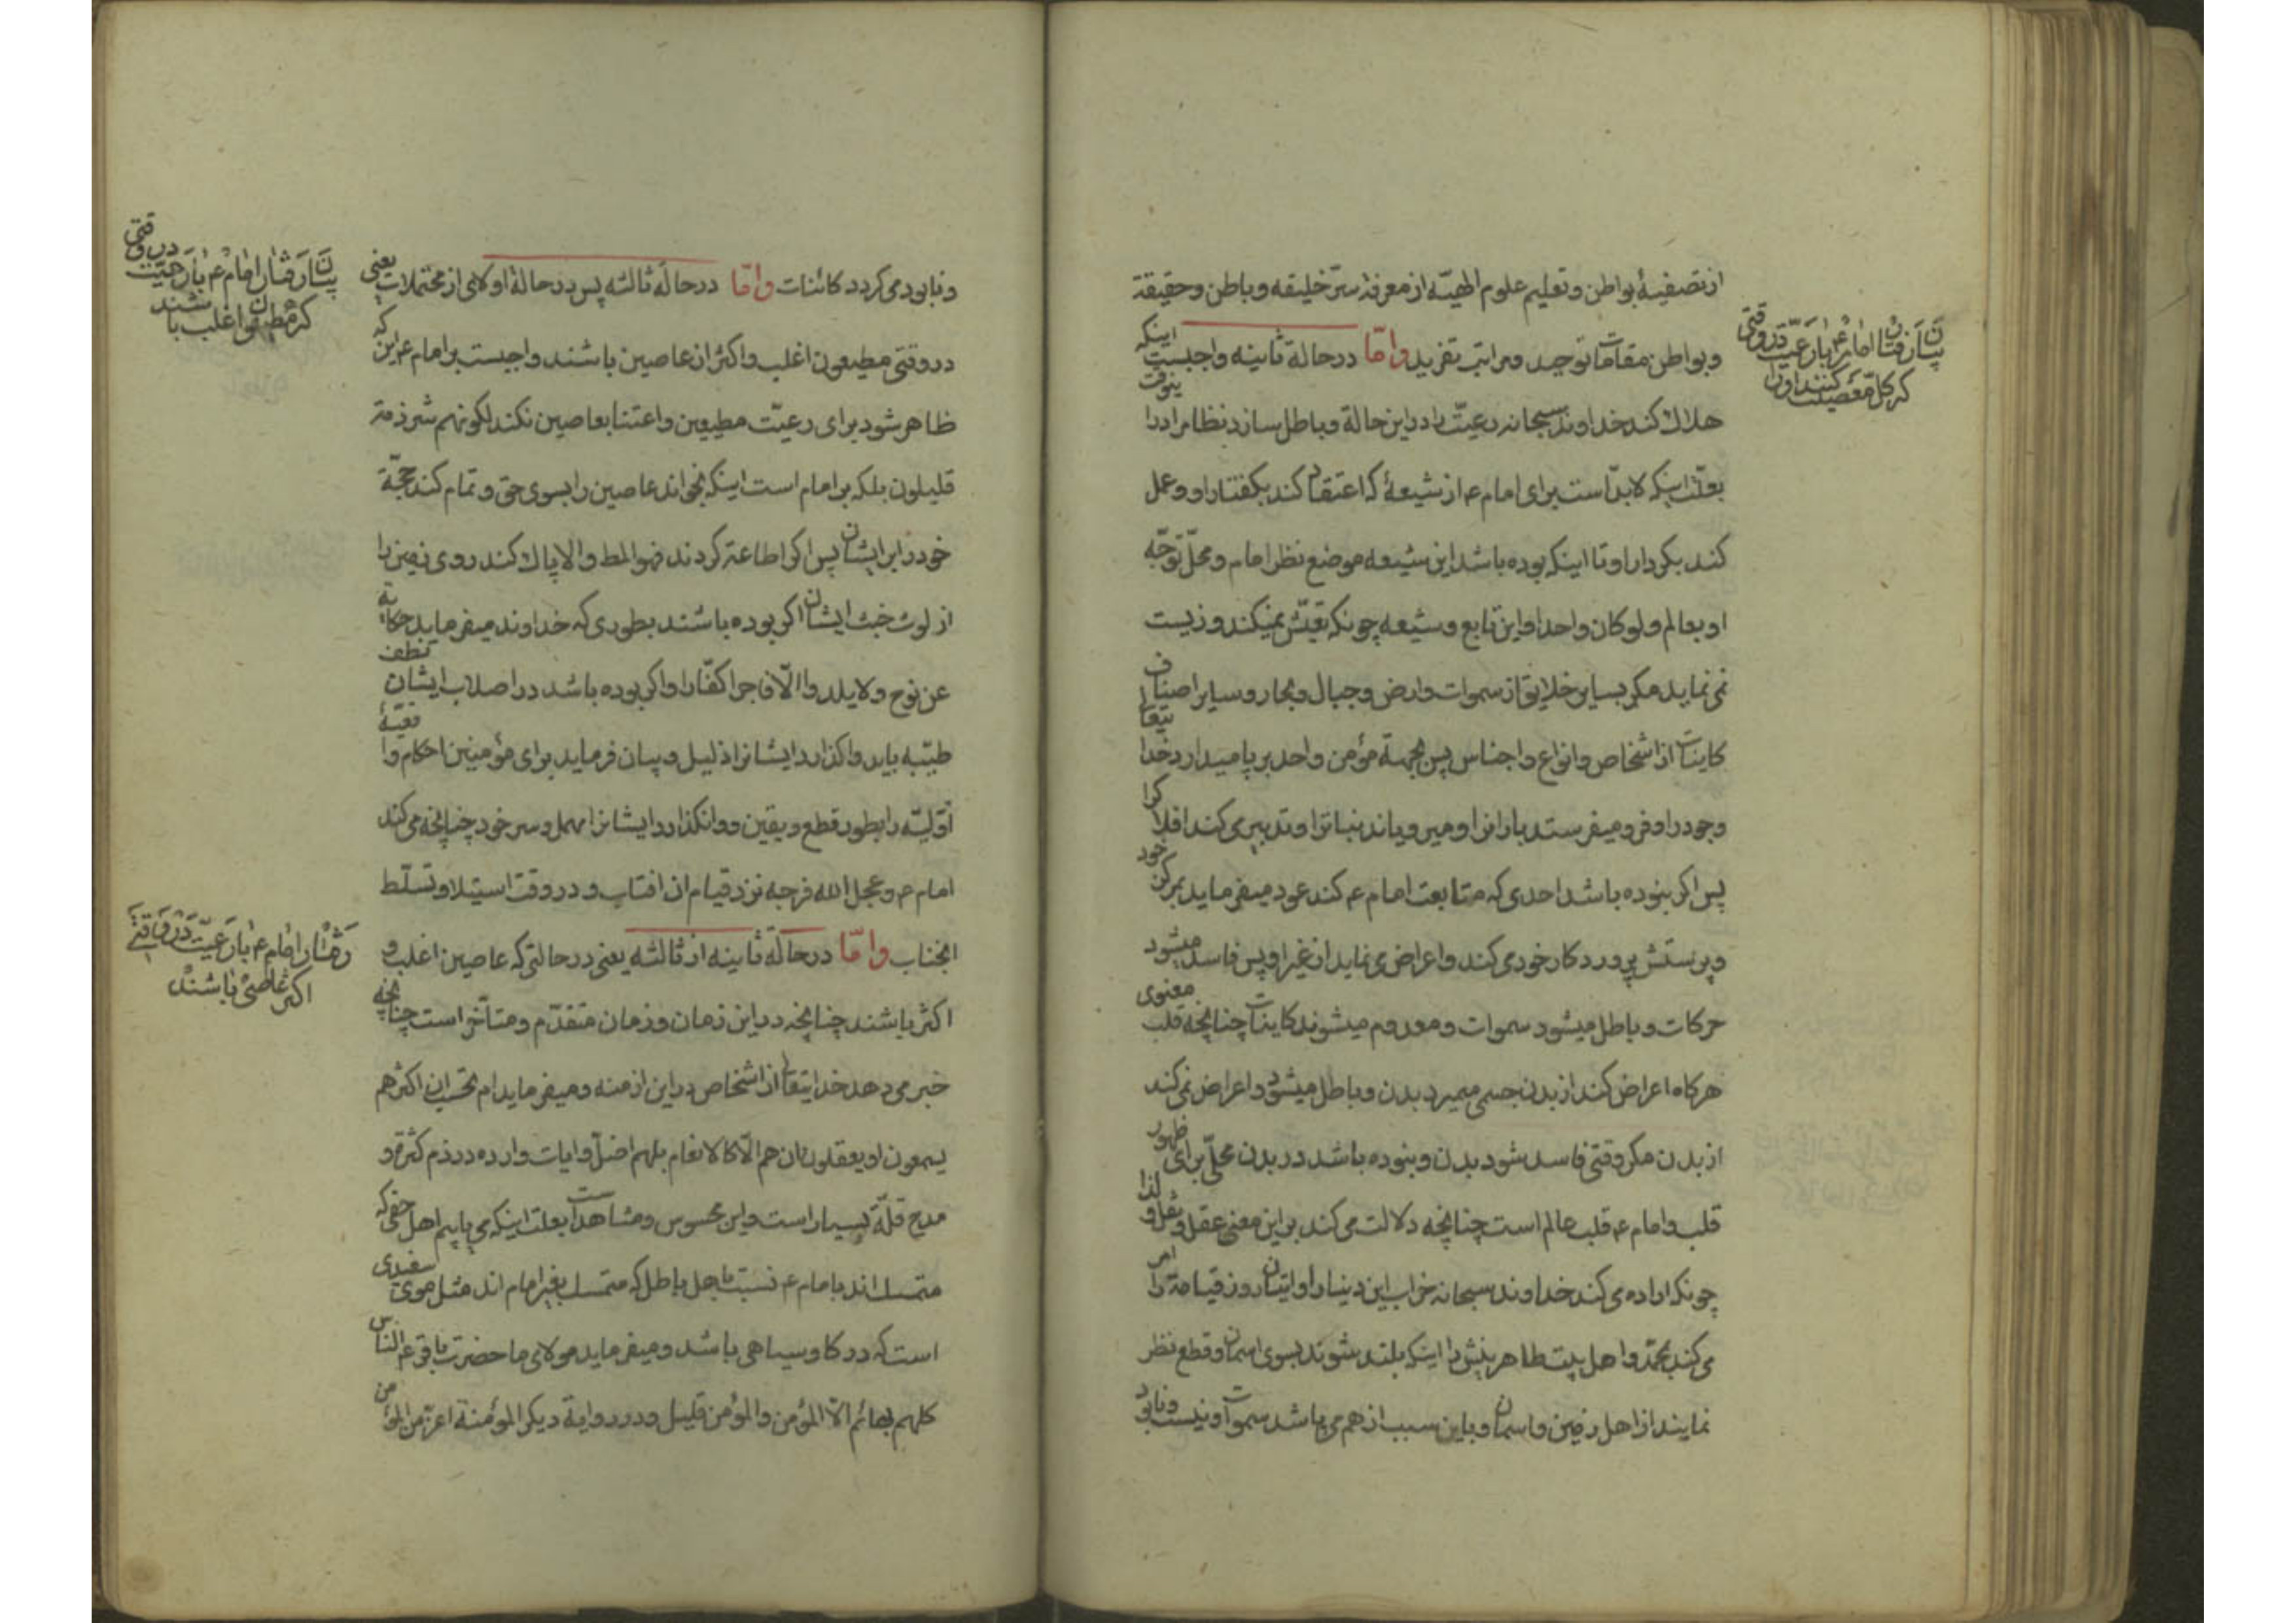 از تصفیۀ بواطن و تعلیم علوم الهیّه از معرفة سرّ خلیقه و باطن و حقیقة
و بواطن مقامات توحید و مراتب تفرید وامّا در حالة ثانیه واجبست اینکه
هلاك کند خداوند سبحانه رعیّت را در این حالة و باطل سازد نظام را در
بعلّت اینکه لابدّ است برای امام ع از شیعۀ که اعتقاد کند بکفتار او و عمل
کند بکردار او تا اینکه بوده باشد این شیعه موضع نظر امام و محلّ توجّه
او بعالم ولو کان واحدا و این تابع و شیعه چونکه تعیّش نمیکند و زیست
نمی نماید مکر بسایر خلایق از سموات و ارض و جبال و بحار و سایر اصناف
کاینات از اشخاص و انواع و اجناس پس بجهة مؤمن واحد بر پا میدارد خدا یتعا
وجود را و فرو میفرستد باران را و میرویاند نباتات را و تدبیر می کند افلاکرا
پس اکر نبوده باشد احدی که متابعت امام ع کند عود میفرماید بمرکز خود
و پرستش پروردکار خود می کند و اعراض می نماید از غیر او پس فاسد میشود
حرکات و باطل میشود سموات و معدوم میشوند کاینات چنانچه قلب معنوی
هرکاه اعراض کند از بدن جسمی میمیرد بدن و باطل میشود و اعراض نمی کند
از بدن مکر وقتی فاسد شود بدن و نبوده باشد در بدن محلّی برای ظهور
قلب و امام ع قلب عالم است چنانچه دلالت می کند بر این معنی عقل و نقل و لذا
چونکه اراده می کند خداوند سبحانه خراب این دنیا را و اتیان روز قیامة را امر
می کند بمحمّد و اهل بیت طاهرینش را اینکه بلند شوند بسوی اسمان و قطع نظر
نمایند از اهل زمین و اسمان و باین سبب از هم می پاشد سموات و نیست و نابود
بیان رفتار امام ع با رعیّت در وقتی
که کلّ معصیت کنند او را
و نابود می کردد کائنات وامّا در حالة ثالثه پس در حالة اولای از محتملات یعنی
در وقتی مطیعون اغلب و اکثر از عاصین باشند واجبست بر امام ع این که
ظاهر شود برای رعیّت مطیعین و اعتنا بعاصین نکند لکونهم شرذمة
قلیلون بلکه بر امام است اینکه بخواند عاصین را بسوی حق و تمام کند حجّة
خود را بر ایشان پس اکر اطاعة کردند فهو المط و الا پاك کند روی زمین را
از لوث خبث ایشان اکر بوده باشند بطوری که خداوند میفرماید حکایة
عن نوح ولا یلدوا الّا فاجرا کفّارا و اکر بوده باشد در اصلاب ایشان نطف
طیّبه باید واکذارد ایشانرا ذلیل و بیان فرماید برای مؤمنین احکام وا قعیّۀ
اوّلیّه را بطور قطع و یقین و وانکذارد ایشانرا مهمل و سر خود چنانچه می کند
امام ع و عجل الله فرجه نزد قیام ان افتاب و در وقت استیلا و تسلّط
انجناب وامّا در حالة ثانیه از ثالثه یعنی در حالتی که عاصین اغلب و
اکثر باشند چنانچه در این زمان و زمان متقدّم و متأخّر است چنانچه
خبر می دهد خدا یتعا از اشخاص در این ازمنه و میفرماید ام تحسب ان اکثرهم
یسمعون او یعقلون ان هم الّا کالانعام بلهم اضلّ و ایات وارده در ذمّ کثرة و
مدح قلّة بسیار است و این محسوس و مشاهد است بعلت اینکه می یابیم اهل حق که
متمسك اند بامام ع نسبت باهل باطل که متمسك بغیر امام اند مثل موی سفیدی
است که در کاو سیاهی باشد و میفرماید مولای ما حضرت باقر ع الناس
کلهم بهائم الّا المؤمن و المؤمن قلیل و در روایة دیکر المؤمنة اعزّ من المؤمن
بیان رفتار امام ع با رعیّت در وقتی
که مطیعون اغلب باشند
رفتار امام ع با رعیّت در وقتی
اکثر عاصی باشند